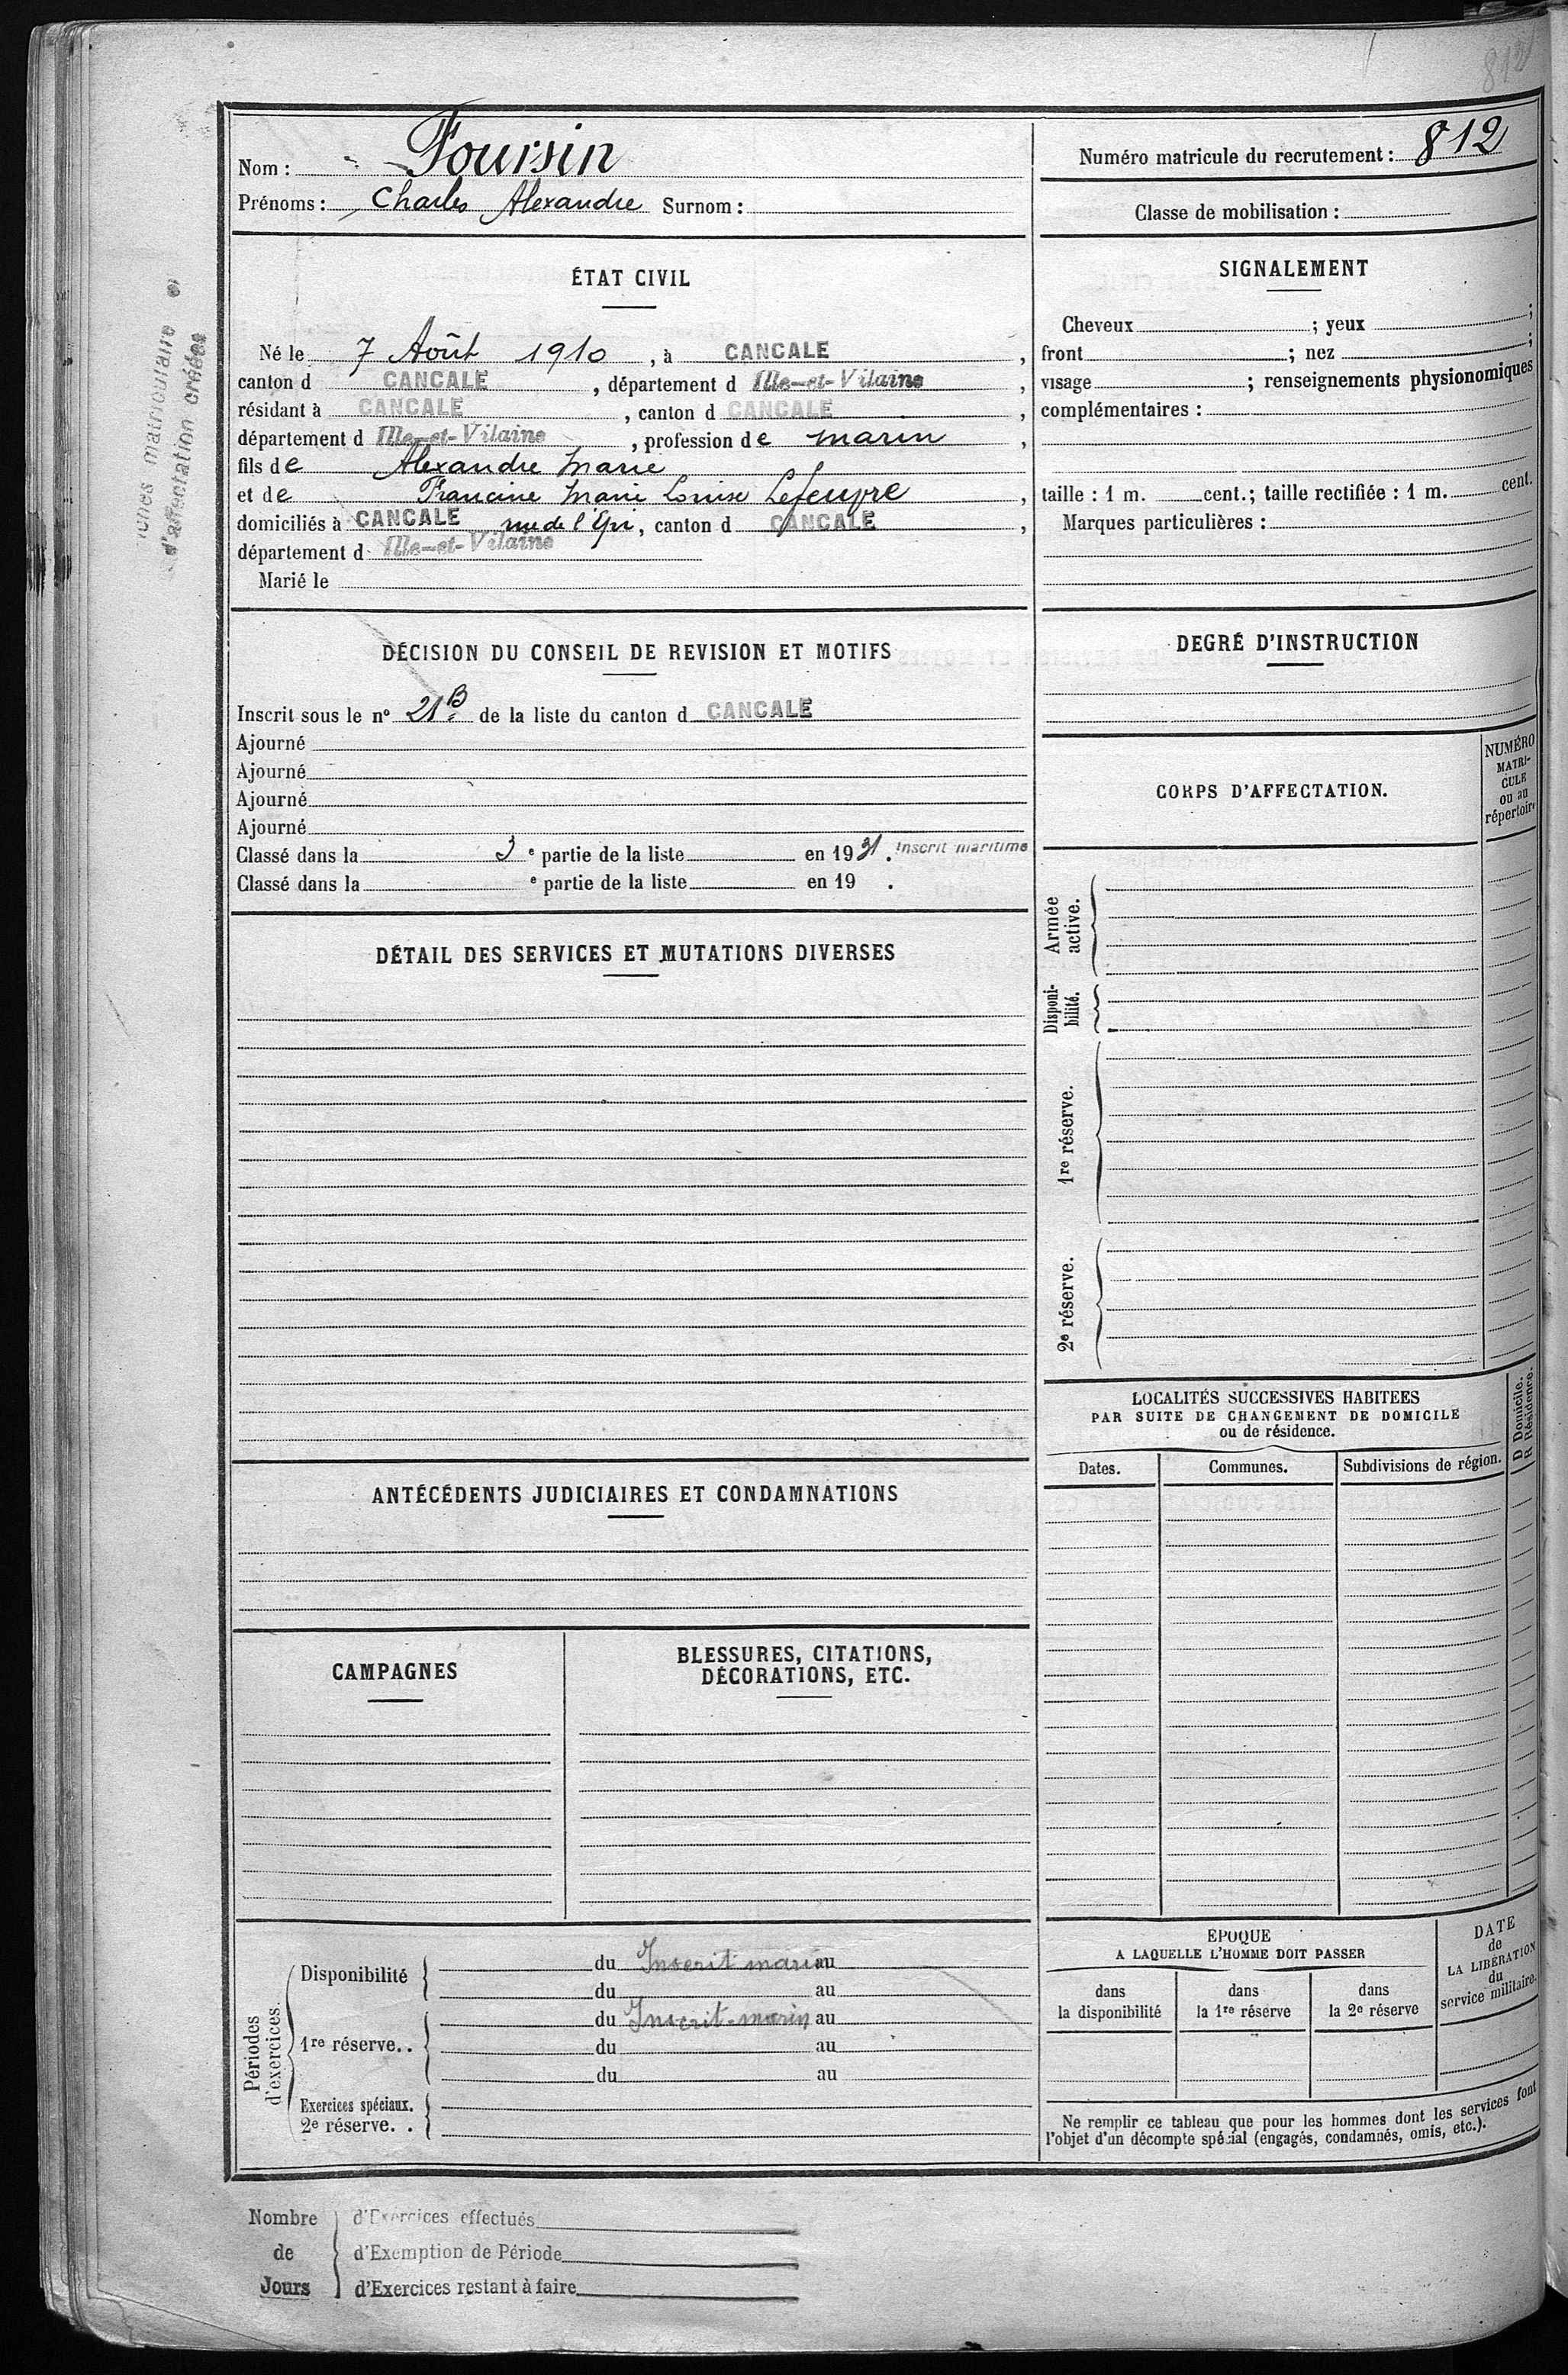 812
Nom : Foursin
Prénoms : Charles Alexandre Surnom :
Numéro matricule du recrutement : 812
Classe de mobilisation :
matriculaire et
d'affectation créées
ÉTAT CIVIL
Né le 7 Août 1910, à CANCALE,
canton d CANCALE, département d Ille-et-Vilaine,
résidant à CANCALE, canton d CANCALE,
département d Ille-et-Vilaine, profession de marin,
fils de Alexandre Marie
et de Francine Marie Louise Lefeuvre,
domiciliés à CANCALE rue de l'Epi, canton d CANCALE,
département d Ille-et-Vilaine
Marié le
DÉCISION DU CONSEIL DE REVISION ET MOTIFS
Inscrit sous le nº 21 B de la liste du canton d CANCALE
Ajourné
Ajourné
Ajourné
Ajourné
Classé dans la 3 e partie de la liste en 1931. Inscrit maritime
Classé dans la e partie de la liste en 19 .
DÉTAIL DES SERVICES ET MUTATIONS DIVERSES
ANTÉCÉDENTS JUDICIAIRES ET CONDAMNATIONS
CAMPAGNES
BLESSURES, CITATIONS,
DÉCORATIONS, ETC.
Périodes
d'exercices.
Disponibilité
du Inscrit marin au
du au
1re réserve..
du Inscrit marin au
du au
du au
Exercices spéciaux.
2e réserve. .
SIGNALEMENT
Cheveux ; yeux ;
front ; nez ;
visage ; renseignements physionomiques
complémentaires :
taille : 1 m. cent.; taille rectifiée : 1 m. cent.
Marques particulières :
DEGRÉ D'INSTRUCTION
CORPS D'AFFECTATION.
NUMÉRO
MATRI-
CULE
ou au
répertoire
Armée
active.
Disponi-
bilité.
1re réserve.
2e réserve.
LOCALITÉS SUCCESSIVES HABITEES
PAR SUITE DE CHANGEMENT DE DOMICILE
ou de résidence.
D Domicile.
R Résidence.
Dates. Communes. Subdivisions de région.
ÉPOQUE
A LAQUELLE L'HOMME DOIT PASSER
dans
la disponibilité
dans
la 1re réserve
dans
la 2e réserve
DATE
de
LA LIBÉRATION
du
service militaire.
Ne remplir ce tableau que pour les hommes dont les services font
l'objet d'un décompte spécial (engagés, condamnés, omis, etc.).
Nombre
de
Jours
d'Exercices effectués
d'Exemption de Période
d'Exercices restant à faire